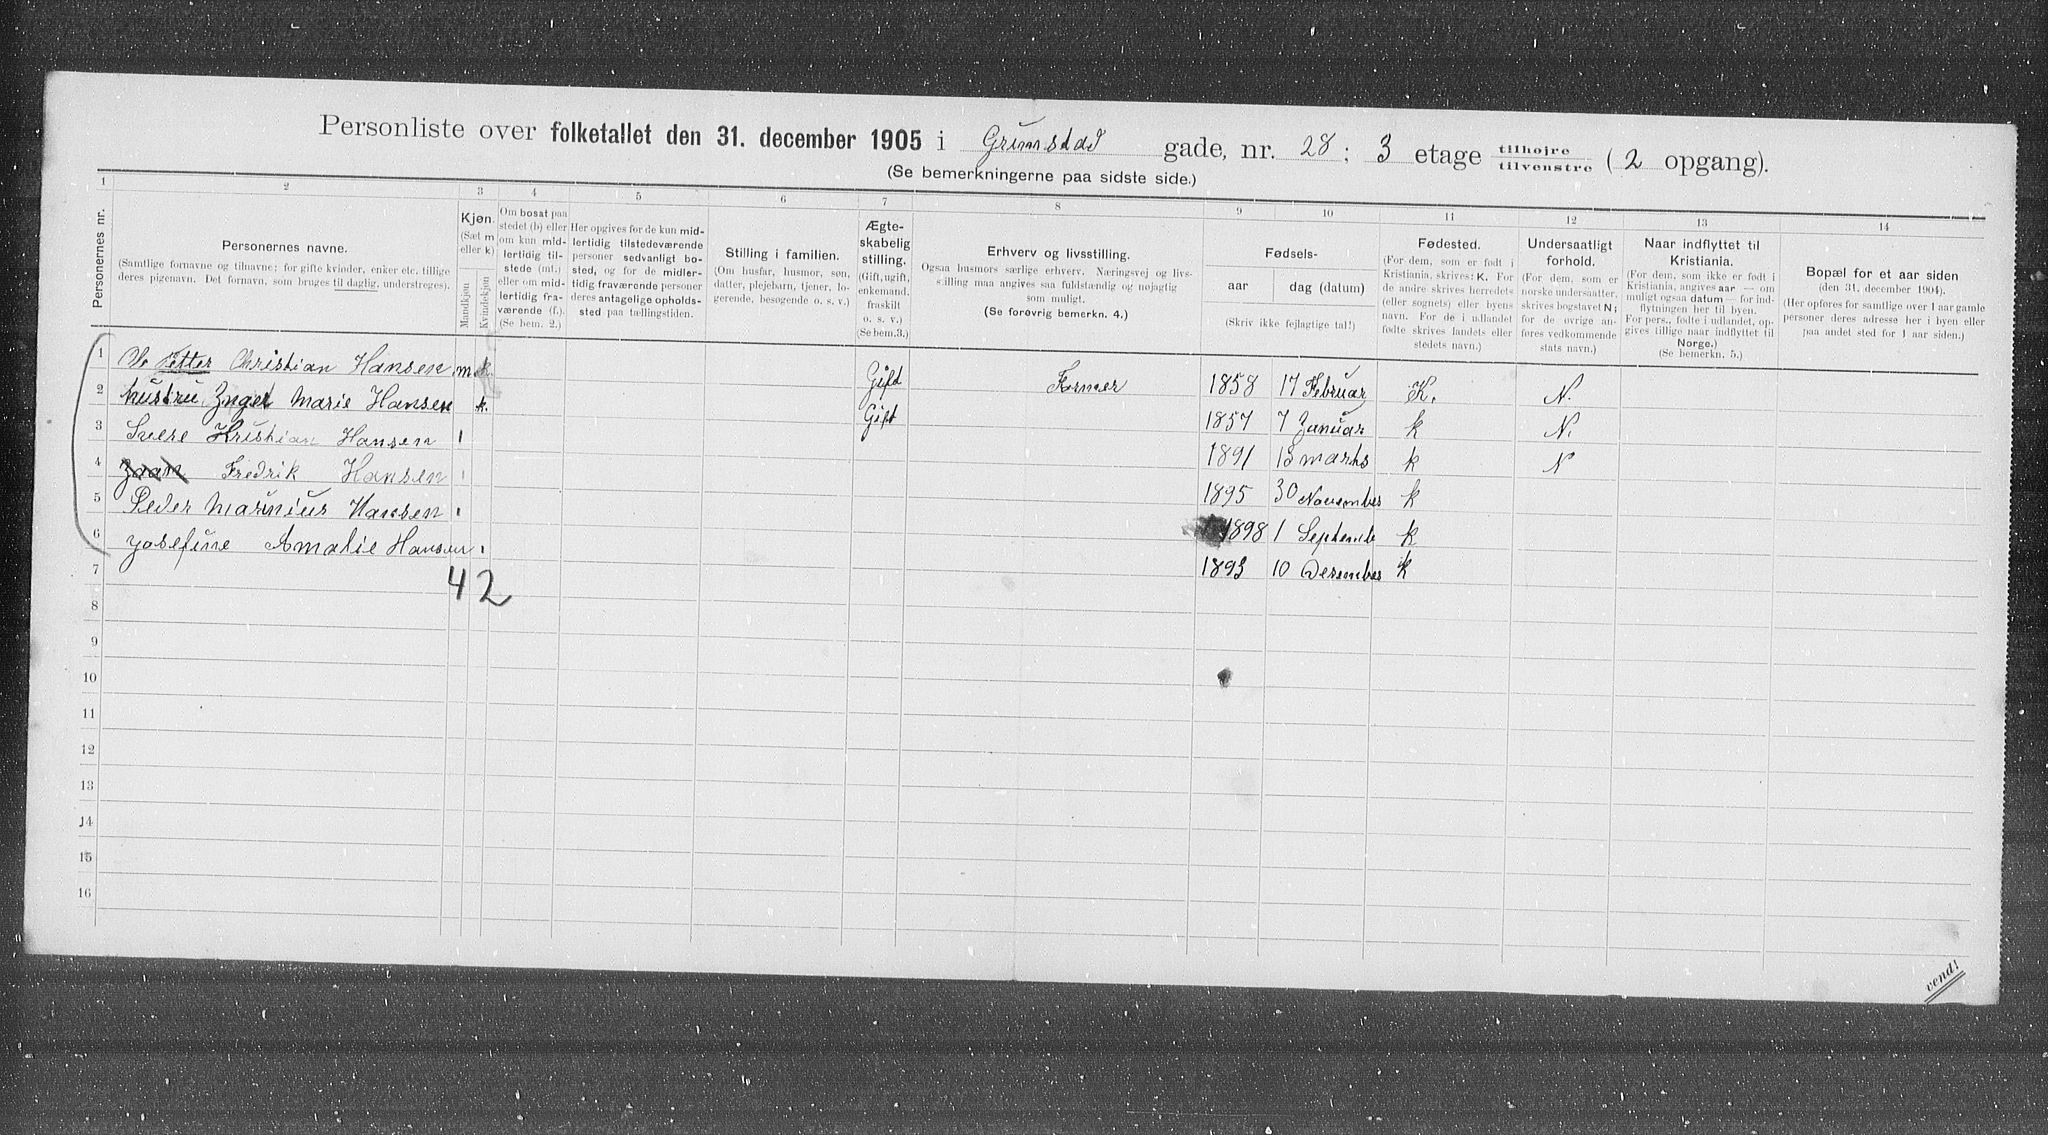 Personliste over folketallet den 31. december 1905 i Grimstad gade, nr. 28 ; 3 etage tilhøjre / tilvenstre ( 2 opgang).
(Se bemerkningerne paa sidste side.)
1 2 3 4 5 6 7 8 9 10 11 12 13 14
Personernes nr.
Personernes navne.
(Samtlige fornavne og tilnavne; for gifte kvinder, enker etc. tillige
deres pigenavn. Det fornavn, som bruges til daglig, understreges).
Kjøn.
(Sæt m
eller k)
Mandkjøn
Kvindekjøn
Om bosat paa
stedet (b) eller
om kun mid-
lertidig til-
stede (mt.)
eller om mid-
lertidig fra-
værende (f.).
(Se bem. 2.)
Her opgives for de kun mid-
lertidig tilstedeværende
personer sedvanligt bo-
sted, og for de midler-
tidig fraværende personer
deres antagelige opholds-
sted paa tællingstiden.
Stilling i familien.
(Om husfar, husmor, søn,
datter, plejebarn, tjener, lo-
gerende, besøgende o. s. v.)
Ægte-
skabelig
stilling.
(Gift, ugift,
enkemand,
fraskilt
o. s. v.)
(Se bem.3.)
Erhverv og livsstilling.
Ogsaa husmors særlige erhverv. Næringsvej og livs-
stilling maa angives saa fuldstændig og nøjagtig
som muligt.
(Se forøvrig bemerkn. 4.)
Fødsels-
aar dag (datum)
(Skriv ikke fejlagtige tal!)
Fødested.
(For dem, som er født i
Kristiania, skrives: K. For
de andre skrives herredets
(eller sognets) eller byens
navn. For de i udlandet
fødte skrives landets eller
stedets navn.)
Undersaatligt
forhold.
(For dem, som er
norske undersaatter,
skrives bogstavet N;
for de øvrige an-
føres vedkommende
stats navn.)
Naar indflyttet til
Kristiania.
(For dem, som ikke er født i
Kristiania, angives aar — om
muligt ogsaa datum — for ind-
flytningen her til byen.
For pers., fødte i udlandet, op-
gives tillige naar indflyttet til
Norge.)
(Se bemerkn. 5.)
Bopæl for et aar siden
(den 31. december 1904).
(Her opføres for samtlige over 1 aar gamle
personer deres adresse her i byen eller
paa andet sted for 1 aar siden.)
1 Petter Christian Hansen m k. Gift Former 1858 17 Februar K. N.
2 hustru Inger Marie Hansen k. Gift 1857 7 Januar k N.
3 Svere Kristian Hansen 1 1891 13 marts k N
4 Fredrik Hansen 1 1895 30 November k
5 Peder Marinius Hansen 1 1898 1 Septemb k
6 Josefine Amalie Hansen 1 1893 10 Desember k
7
42
8
9
10
11
12
13
14
15
16
vend!